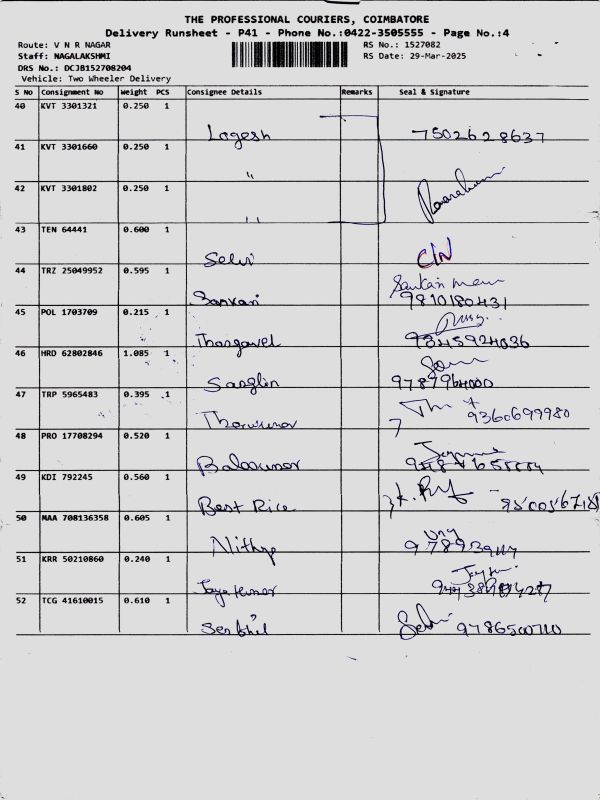 THE PROFESSIONAL COURIERS, COIMBATORE
Delivery Runsheet - P41 - Phone No.:0422-3505555 - Page No.:4
Route: V N R NAGAR RS No.: 1527082
Staff: NAGALAKSHMI RS Date: 29-Mar-2025
DRS No.: DCJB152708204
Vehicle: Two Wheeler Delivery
S No Consignment No Weight PCS Consignee Details Remarks Seal & Signature
40 KVT 3301321 0.250 1
Logesh 7502628637
41 KVT 3301660 0.250 1
"
42 KVT 3301802 0.250 1
"
43 TEN 64441 0.600 1
Selvi
44 TRZ 25049952 0.595 1
Sankari mam
9810180431
45 POL 1703709 0.215 1
Thangavel 9345924036
46 HRD 62802846 1.085 1
9787964000
47 TRP 5965483 0.395 1
9360699980
48 PRO 17708294 0.520 1
49 KDI 792245 0.560 1
Best Rice
50 MAA 708136358 0.605 1
Nithya
51 KRR 50210860 0.240 1
Jayakumar
52 TCG 41610015 0.610 1
Senthil 9786500710